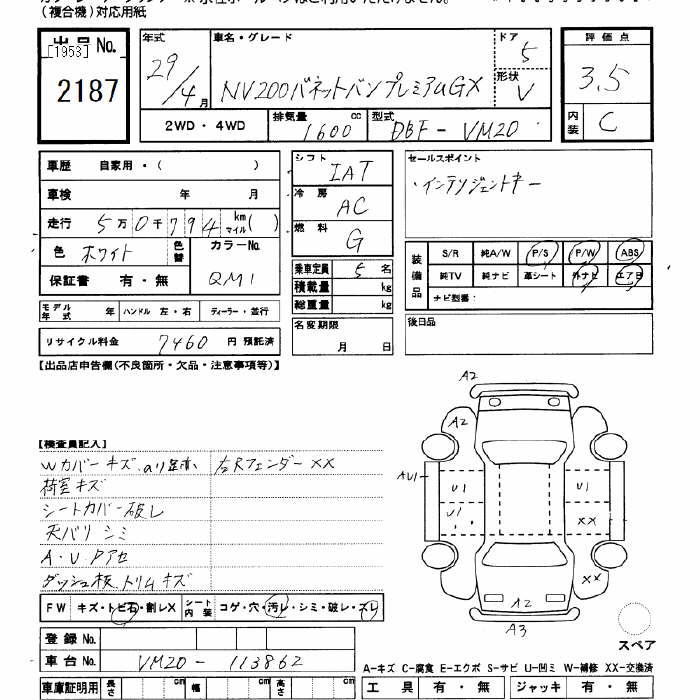 (複合機)対応用紙
出品 No.
[1953]
2187
年式 29/4 月
車名・グレード NV200バネットバンプレミアムGX
ドア 5
形状 V
評価点 3.5
内装 C
2WD・4WD
排気量 1600 cc
型式 DBF-VM20
車歴 自家用・( )
車検 年 月
走行 5万0千794 km マイル( )
色 ホワイト 色替
カラーNo. QM1
保証書 有・無
モデル年式 年 ハンドル 左・右 ディーラー・並行
リサイクル料金 7460 円 預託済
シフト IAT
冷房 AC
燃料 G
乗車定員 5 名
積載量 kg
総重量 kg
名変期限 月 日
セールスポイント
・インテリジェントキー
装備品 S/R 純A/W P/S P/W ABS
純TV 純ナビ 革シート 外ナビ エアB
ナビ型番:
後日品
【出品店申告欄(不良箇所・欠品・注意事項等)】
【検査員記入】
Wカバーキズ
右Rフェンダー XX
荷室キズ
シートカバー破レ
天バリ シミ
A・Uクアセ
ダッシュ板、トリムキズ
FW キズ・トビ石・割レX シート内装 コゲ・穴・汚レ・シミ・破レ・スレ
登録 No.
車台 No. VM20-113862
車庫証明用 長さ cm 幅 cm 高さ cm
A2
A2
AU1
U1
U1
U1
XX
XX
A2
A3
スペア
A-キズ C-腐食 E-エクボ S-サビ U-凹ミ W-補修 XX-交換済
工具 有・無 ジャッキ 有・無